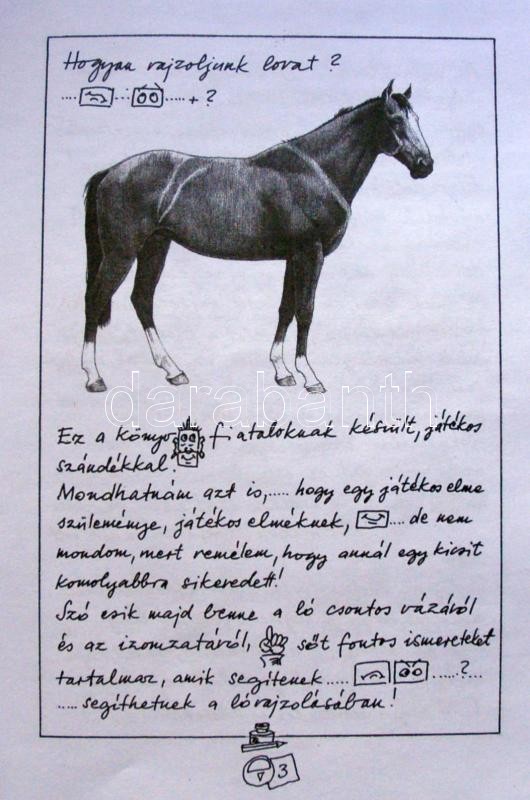 Hogyan rajzoljunk lovat ?
..... ... ..... + ?
darabanth
Ez a könyv fiataloknak készült, játékos
szándékkal!
Mondhatnám azt is,..... hogy egy játékos elme
szüleménye, játékos elméknek, .... de nem
mondom, mert remélem, hogy annál egy kicsit
komolyabbra sikeredett!
Szó esik majd benne a ló csontos vázáról
és az izomzatáról, sőt fontos ismereteket
tartalmaz, amik segítenek ..... .....?...
..... segíthetnek a lórajzolásában!
3